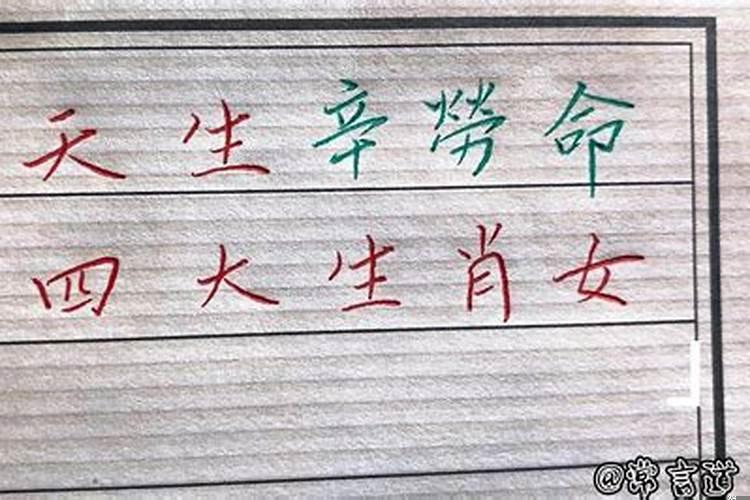 天生辛勞命
四大生肖女
@常言道